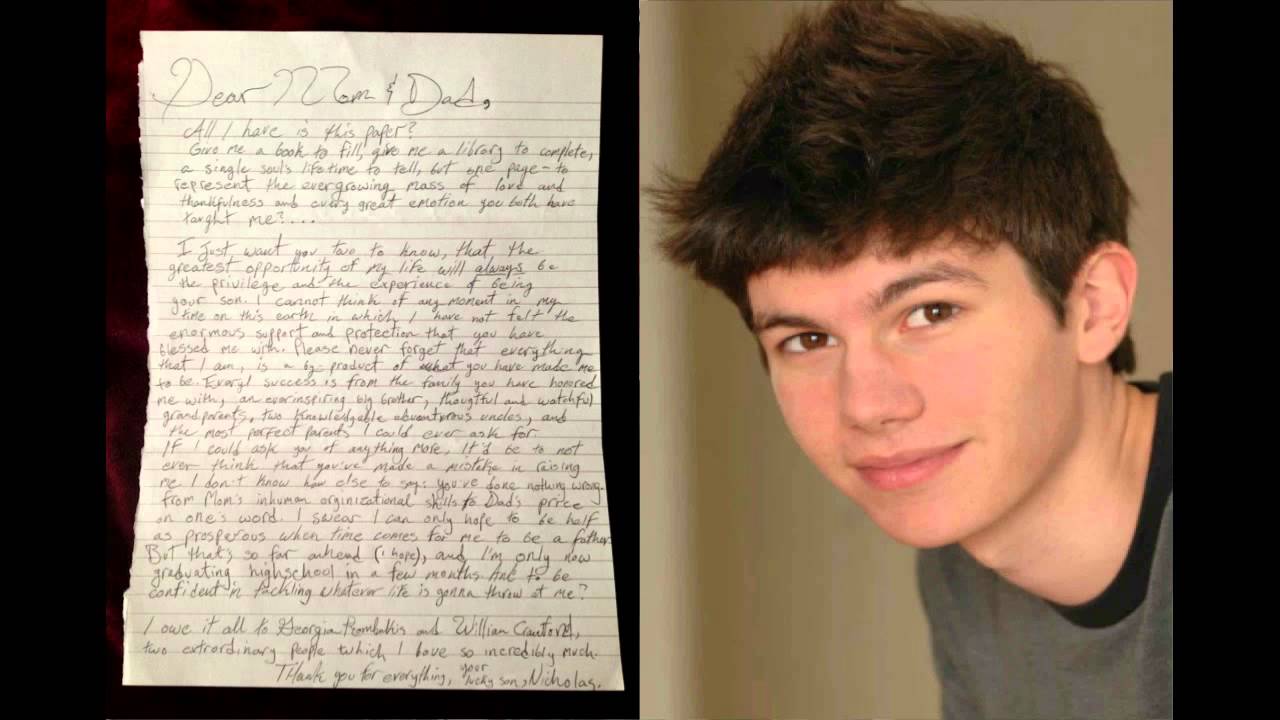 Dear Mom & Dad,
All I have is this paper?
Give me a book to fill, give me a library to complete,
a single soul's lifetime to tell, but one page - to
represent the evergrowing mass of love and
thankfulness and every great emotion you both have
taught me?...
I just want you two to know, that the
greatest opportunity of my life will always be
the privilege and the experience of being
your son. I cannot think of any moment in my
time on this earth in which I have not felt the
enormous support and protection that you have
blessed me with. Please never forget that everything
that I am, is a by-product of what you have made me
to be. Every success is from the family you have honored
me with, an everinspiring big brother, thoughtful and watchful
grandparents, two knowledgable adventurous uncles, and
the most perfect parents I could ever ask for.
If I could ask you of anything more, It'd be to not
ever think that you've made a mistake in raising
me. I don't know how else to say: you've done nothing wrong.
From Mom's inhuman orginizational skills to Dad's price
on one's word. I swear I can only hope to be half
as prosperous when time comes for me to be a father.
But that's so far anhead (I hope), and I'm only now
graduating highschool in a few months. And to be
confident in tackling whatever life is gonna throw at me?
I owe it all to Georgia and William Crawford,
two extrordinary people which I love so incredibly much.
Thank you for everything, your
lucky son, Nicholas.